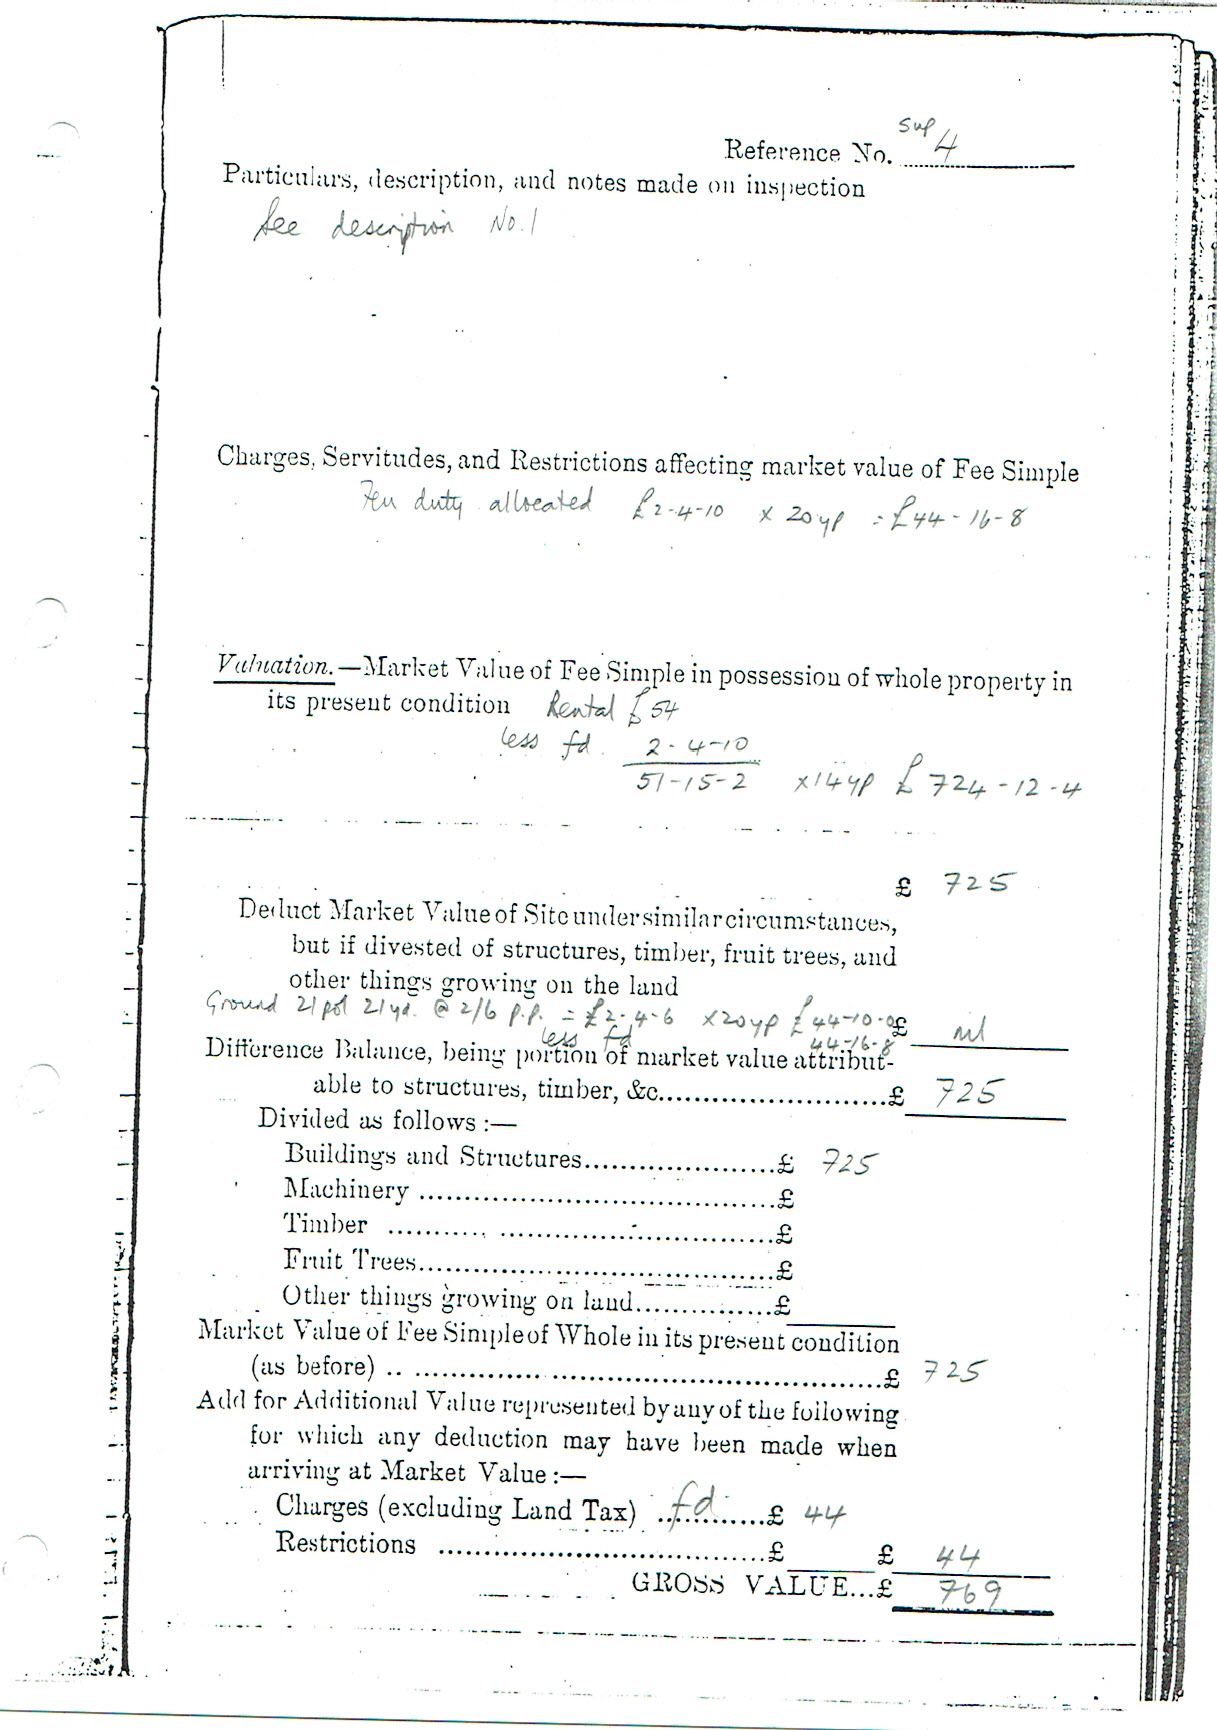 Sup
Reference No. 4
Particulars, description, and notes made on inspection
See description No. 1
Charges, Servitudes, and Restrictions affecting market value of Fee Simple
Feu duty allocated £2-4-10 x 20yp = £44-16-8
Valuation.—Market Value of Fee Simple in possession of whole property in
its present condition Rental £54
less fd. 2-4-10
51-15-2 x14yp £724-12-4
£ 725
Deduct Market Value of Site under similar circumstances,
but if divested of structures, timber, fruit trees, and
other things growing on the land
Ground 21pol 21yd. @ 2/6 p.p. = £2-4-6 x20yp £44-10-0 £ nil
less fd 44-16-8
Difference Balance, being portion of market value attribut-
able to structures, timber, &c........................£ 725
Divided as follows :—
Buildings and Structures......................£ 725
Machinery ........................................£
Timber ........................................£
Fruit Trees........................................£
Other things growing on land...............£
Market Value of Fee Simple of Whole in its present condition
(as before) .. ................................................£ 725
Add for Additional Value represented by any of the following
for which any deduction may have been made when
arriving at Market Value :—
Charges (excluding Land Tax) ..fd......£ 44
Restrictions ....................................£ £ 44
GROSS VALUE...£ 769